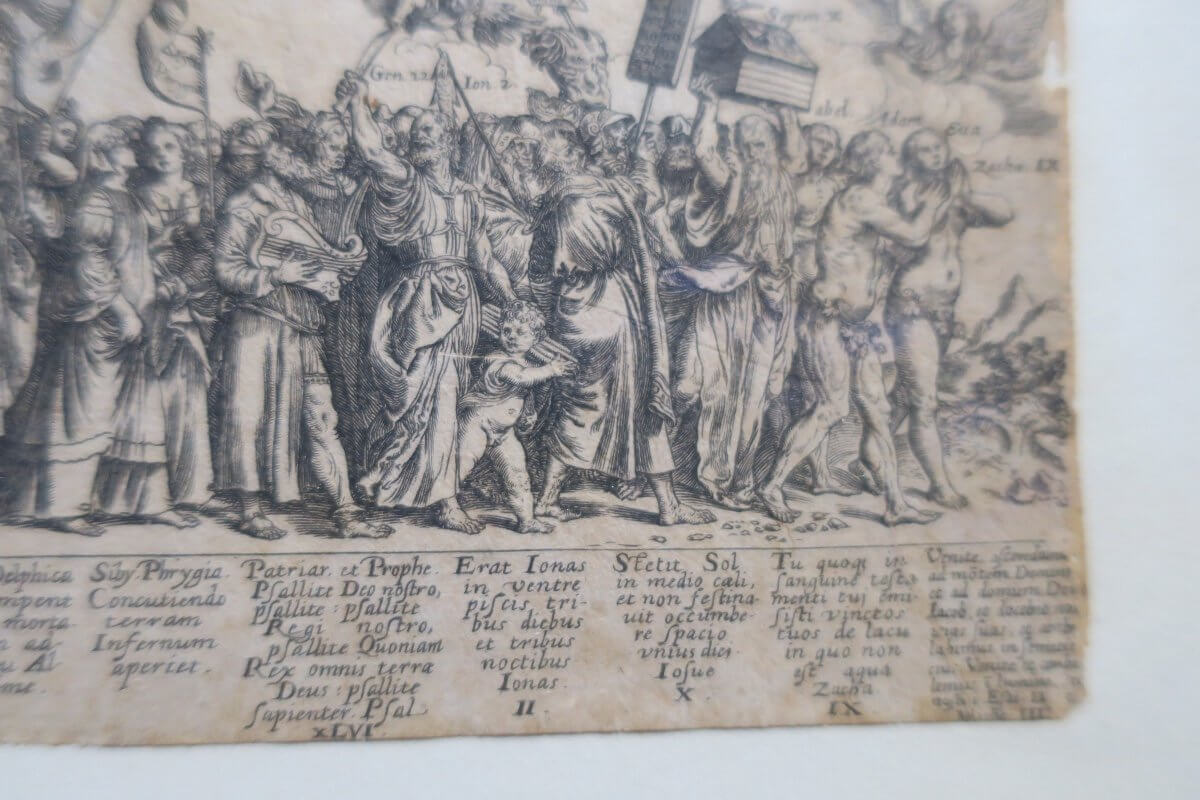 Gen. 22
Ion. 2.
abel
Adam
Eua
Zacha. IX
Delphica
ad
Al
Siby. Phrygia.
Concutiendo
terram
Infernum
aperiet.
Patriar. et Prophe.
Psallite Deo nostro,
psallite: psallite
Regi nostro,
psallite Quoniam
Rex omnis terræ
Deus: psallite
sapienter. Psal.
XLVI
Erat Ionas
in ventre
piscis tri-
bus diebus
et tribus
noctibus
Ionas.
II
Stetit Sol
in medio cæli,
et non festina-
uit occumbe-
re spacio
vnius diei
Iosue
X
Tu quoq in
sanguine testa
menti tui emi-
sisti vinctos
tuos de lacu
in quo non
est aqua
Zacha
IX
Venite, ascendamus
ad motem Domini
et ad domum Dei
Iacob, et docebit
vias suas, et